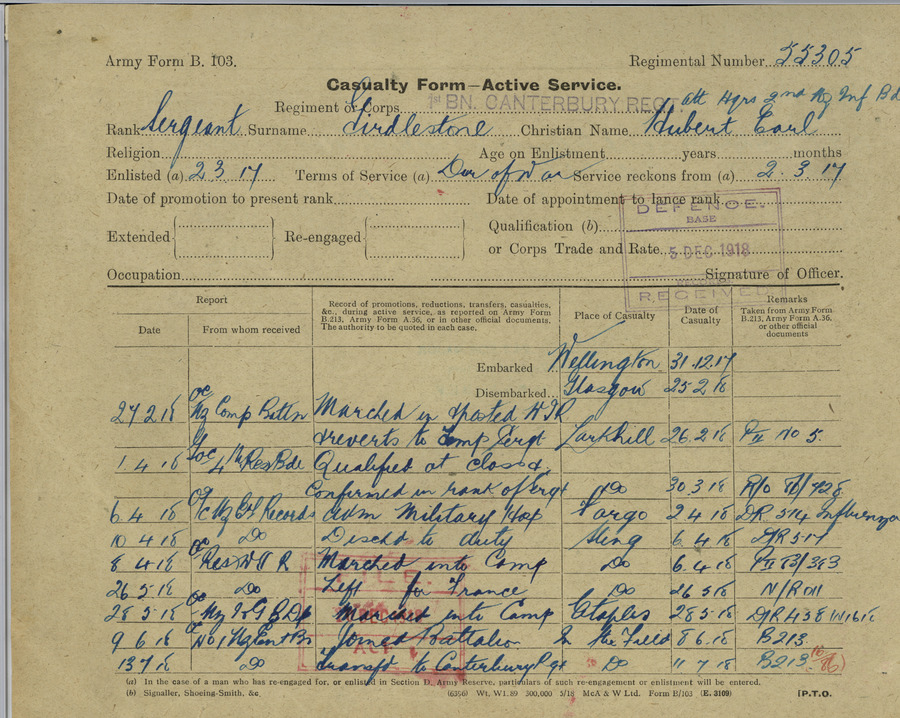 Army Form B. 103. Regimental Number 55305
Casualty Form—Active Service.
Regiment or Corps 1st BN. CANTERBURY REGT. att Hqrs 2nd Inf Bd
Rank Sergeant Surname Girdlestone Christian Name Hubert Earl
Religion Age on Enlistment years months
Enlisted (a) 2 3 17 Terms of Service (a) Dur of War Service reckons from (a) 2.3.17
Date of promotion to present rank Date of appointment to lance rank
DEFENCE.
BASE
Extended Re-engaged Qualification (b)
or Corps Trade and Rate
5 DEC 1918
Occupation Signature of Officer.
RECEIVED
Report Record of promotions, reductions, transfers, casualties, &c., during active service, as reported on Army Form B.213, Army Form A.36, or in other official documents. The authority to be quoted in each case. Place of Casualty Date of Casualty Remarks Taken from Army Form B.213, Army Form A.36, or other official documents
Date From whom received
Embarked Wellington 31.12.17
Disembarked Glasgow 25 2 18
27 2 18 OC Comp Battn Marched in & posted
& reverts to Temp Sergt Larkhill 26.2.18 No 5.
1.4.18 4th Res Bde Qualified at
Confirmed in rank of Sergt Do 30 3 18 R/O
6 4 18 Records Adm Military Hosp Fargo 2 4 18 DR 514 Influenza
10 4 18 Do Discd to duty Sling 6 4 18 D/R 517
8 4 18 OC Res Marched into Camp Do 6.4.18 383
26 5 18 Do Left for France Do 26 5 18 N/R
28 5 18 Marched into Camp Etaples 28 5 18 D/R 458
9 6 18 No 1 Joined Battalion In the Field 8 6 18 B213
13 7 18 Do Transfd to Canterbury Rgt Do 11 7 18 B213
(a) In the case of a man who has re-engaged for, or enlisted in Section D, Army Reserve, particulars of such re-engagement or enlistment will be entered.
(b) Signaller, Shoeing-Smith, &c. (6356) Wt. W1.89 300,000 5/18 McA & W Ltd. Form B/103 (E. 3109) [P.T.O.